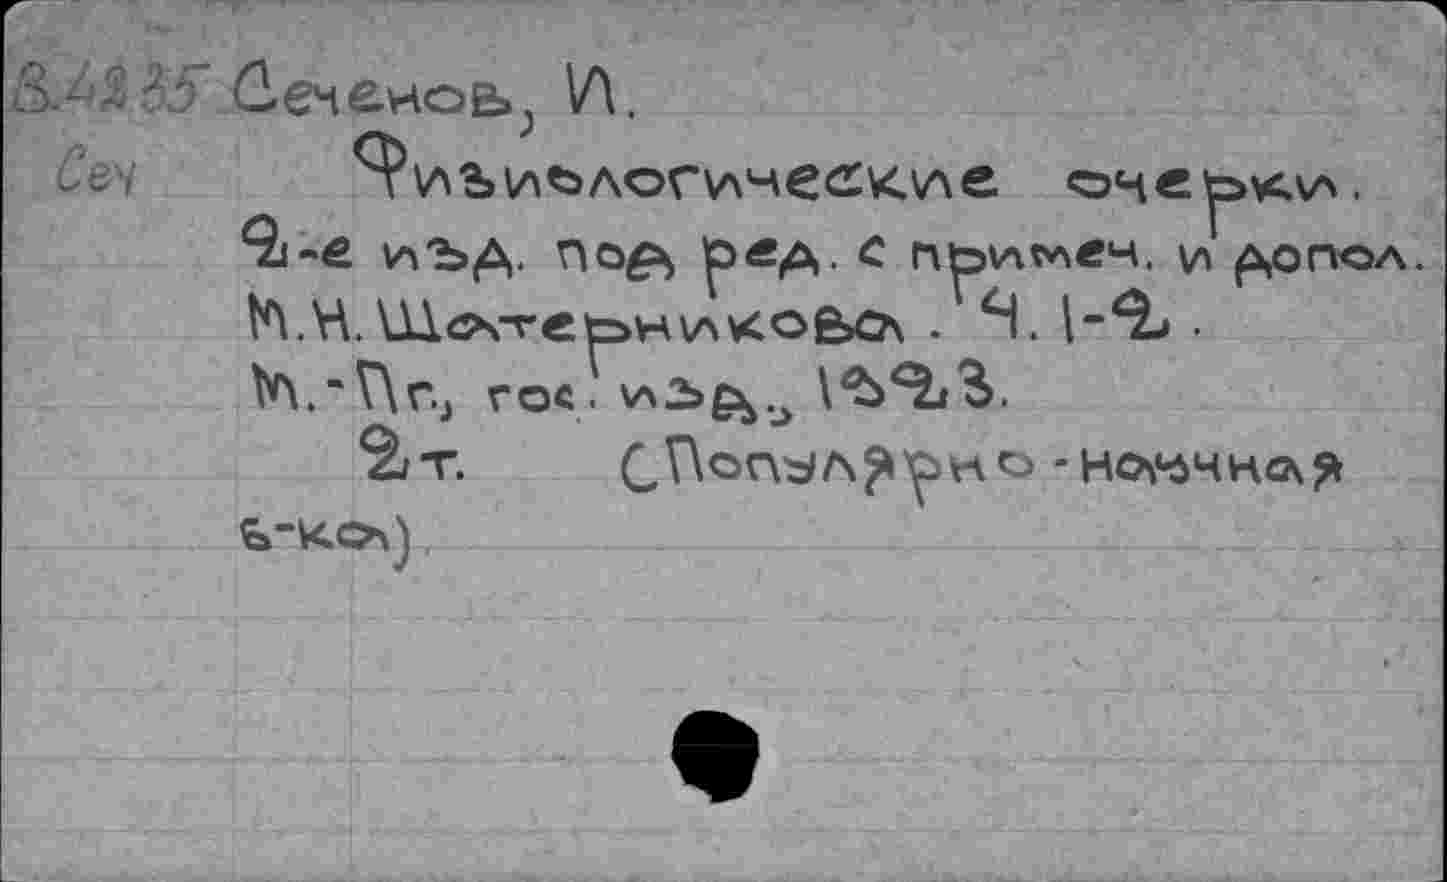 Сеченов, И.
Сеч Физиологические очерки.
2-е изд. под ред. с примеч. и допол.
М.Н. Шатерниковой. Ч. 1-2.
М.-Пг., гос. изд., 1923.
2 т. (Популярно-научная
б-ка)